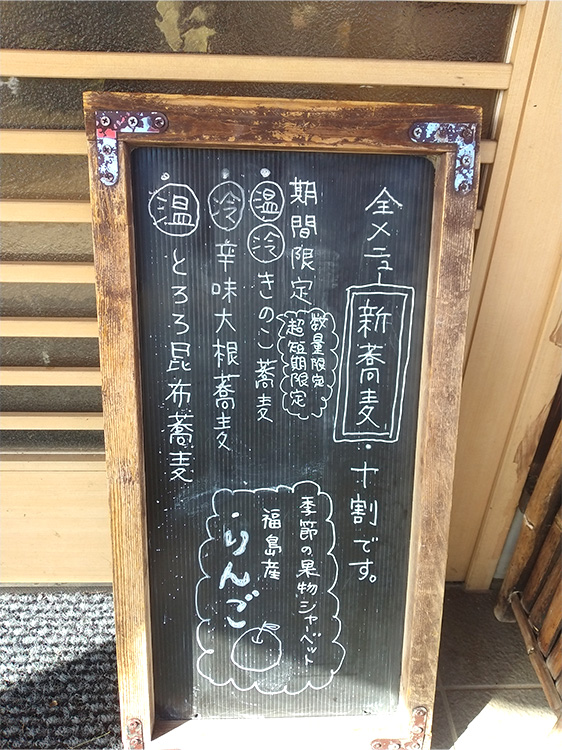 全メニュー新蕎麦・十割です。
期間限定
数量限定
超短期限定
・温冷きのこ蕎麦
・冷辛味大根蕎麦
・温とろろ昆布蕎麦
季節の果物シャーベット
福島産
・りんご